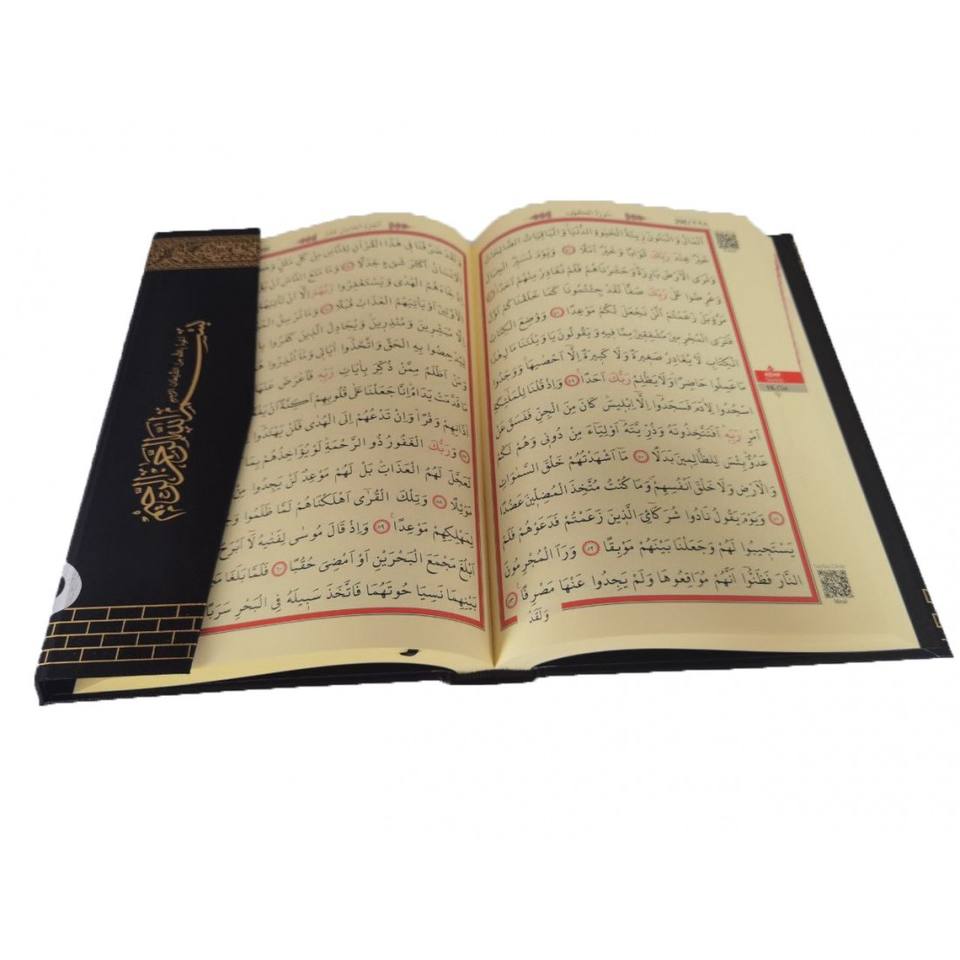 سورة الكهف
اَلْمَالُ وَالْبَنُونَ زِينَةُ الْحَيٰوةِ الدُّنْيَا وَالْبَاقِيَاتُ الصَّالِحَاتُ
خَيْرٌ عِنْدَ رَبِّكَ ثَوَابًا وَخَيْرٌ اَمَلًا ﴿٤٦﴾ وَيَوْمَ نُسَيِّرُ الْجِبَالَ
وَتَرَى الْاَرْضَ بَارِزَةً وَحَشَرْنَاهُمْ فَلَمْ نُغَادِرْ مِنْهُمْ اَحَدًا ﴿٤٧﴾
وَعُرِضُوا عَلٰى رَبِّكَ صَفًّا لَقَدْ جِئْتُمُونَا كَمَا خَلَقْنَاكُمْ اَوَّلَ
مَرَّةٍ بَلْ زَعَمْتُمْ اَلَّنْ نَجْعَلَ لَكُمْ مَوْعِدًا ﴿٤٨﴾ وَوُضِعَ الْكِتَابُ
فَتَرَى الْمُجْرِمِينَ مُشْفِقِينَ مِمَّا فِيهِ وَيَقُولُونَ يَا وَيْلَتَنَا مَالِ هٰذَا
الْكِتَابِ لَا يُغَادِرُ صَغِيرَةً وَلَا كَبِيرَةً اِلَّا اَحْصٰيهَا وَوَجَدُوا
مَا عَمِلُوا حَاضِرًا وَلَا يَظْلِمُ رَبُّكَ اَحَدًا ﴿٤٩﴾ وَاِذْ قُلْنَا لِلْمَلٰٓئِكَةِ
اسْجُدُوا لِاٰدَمَ فَسَجَدُوا اِلَّا اِبْلِيسَ كَانَ مِنَ الْجِنِّ فَفَسَقَ عَنْ
اَمْرِ رَبِّهِ اَفَتَتَّخِذُونَهُ وَذُرِّيَّتَهُ اَوْلِيَاءَ مِنْ دُونِي وَهُمْ لَكُمْ
عَدُوٌّ بِئْسَ لِلظَّالِمِينَ بَدَلًا ﴿٥٠﴾ مَا اَشْهَدْتُهُمْ خَلْقَ السَّمٰوَاتِ
وَالْاَرْضِ وَلَا خَلْقَ اَنْفُسِهِمْ وَمَا كُنْتُ مُتَّخِذَ الْمُضِلِّينَ عَضُدًا
﴿٥١﴾ وَيَوْمَ يَقُولُ نَادُوا شُرَكَٓائِيَ الَّذِينَ زَعَمْتُمْ فَدَعَوْهُمْ فَلَمْ
يَسْتَجِيبُوا لَهُمْ وَجَعَلْنَا بَيْنَهُمْ مَوْبِقًا ﴿٥٢﴾ وَرَاَ الْمُجْرِمُونَ
النَّارَ فَظَنُّوا اَنَّهُمْ مُوَاقِعُوهَا وَلَمْ يَجِدُوا عَنْهَا مَصْرِفًا ﴿٥٣﴾
وَلَقَدْ
الجزء الخامس عشر
وَلَقَدْ صَرَّفْنَا فِي هٰذَا الْقُرْاٰنِ لِلنَّاسِ مِنْ كُلِّ مَثَلٍ
الْاِنْسَانُ اَكْثَرَ شَيْءٍ جَدَلًا ﴿٥٤﴾ وَمَا مَنَعَ النَّاسَ
اِذْ جَاءَهُمُ الْهُدٰى وَيَسْتَغْفِرُوا رَبَّهُمْ اِلَّا اَنْ
الْاَوَّلِينَ اَوْ يَاْتِيَهُمُ الْعَذَابُ قُبُلًا ﴿٥٥﴾ وَمَا نُرْسِلُ
اِلَّا مُبَشِّرِينَ وَمُنْذِرِينَ وَيُجَادِلُ الَّذِينَ كَفَرُوا
لِيُدْحِضُوا بِهِ الْحَقَّ وَاتَّخَذُوا اٰيَاتِي وَمَا اُنْذِرُوا
وَمَنْ اَظْلَمُ مِمَّنْ ذُكِّرَ بِاٰيَاتِ رَبِّهِ فَاَعْرَضَ عَنْهَا
مَا قَدَّمَتْ يَدَاهُ اِنَّا جَعَلْنَا عَلٰى قُلُوبِهِمْ اَكِنَّةً اَنْ
اٰذَانِهِمْ وَقْرًا وَاِنْ تَدْعُهُمْ اِلَى الْهُدٰى فَلَنْ يَهْتَدُوا
﴿٥٧﴾ وَرَبُّكَ الْغَفُورُ ذُو الرَّحْمَةِ لَوْ يُؤَاخِذُهُمْ بِمَا
لَعَجَّلَ لَهُمُ الْعَذَابَ بَلْ لَهُمْ مَوْعِدٌ لَنْ يَجِدُوا مِنْ
مَوْئِلًا ﴿٥٨﴾ وَتِلْكَ الْقُرٰى اَهْلَكْنَاهُمْ لَمَّا ظَلَمُوا
لِمَهْلِكِهِمْ مَوْعِدًا ﴿٥٩﴾ وَاِذْ قَالَ مُوسٰى لِفَتٰيهُ لَا اَبْرَحُ
اَبْلُغَ مَجْمَعَ الْبَحْرَيْنِ اَوْ اَمْضِيَ حُقُبًا ﴿٦٠﴾ فَلَمَّا بَلَغَا
بَيْنِهِمَا نَسِيَا حُوتَهُمَا فَاتَّخَذَ سَبِيلَهُ فِي الْبَحْرِ سَرَبًا
بسم الله الرحمن الرحيم